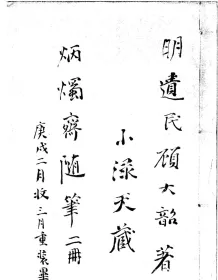 明遺民顧大韶著
小淥天藏
炳燭齋隨筆二冊
庚戌二月收三月重裝畢